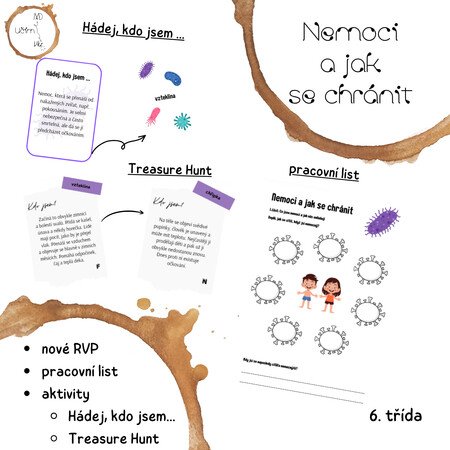 Hádej, kdo jsem ...
Nemoci
a jak
se chránit
Hádej, kdo jsem ...
Nemoc, která se přenáší od
nakažených zvířat, např.
pokousáním. Je velmi
nebezpečná a často
smrtelná, ale dá se jí
předcházet očkováním.
vzteklina
Treasure Hunt
vzteklina
Kdo jsem!
Začíná to obvykle zimnicí
a bolestí svalů. Přidá se kašel,
únava a někdy horečka. Lidé
mají pocit, jako by je přejel
vlak. Přenáší se vzduchem
a objevuje se hlavně v zimních
měsících. Pomáhá odpočinek,
čaj a teplá deka.
F
Kdo jsem!
Na těle se objeví svědivé
pupínky, člověk je unavený a
může mít teplotu. Nejčastěji ji
prodělají děti a pak už ji
obvykle nedostanou znovu.
Dnes proti ní existuje
očkování.
N
pracovní list
Nemoci a jak se chránit
nové RVP
pracovní list
aktivity
Hádej, kdo jsem...
Treasure Hunt
6. třída